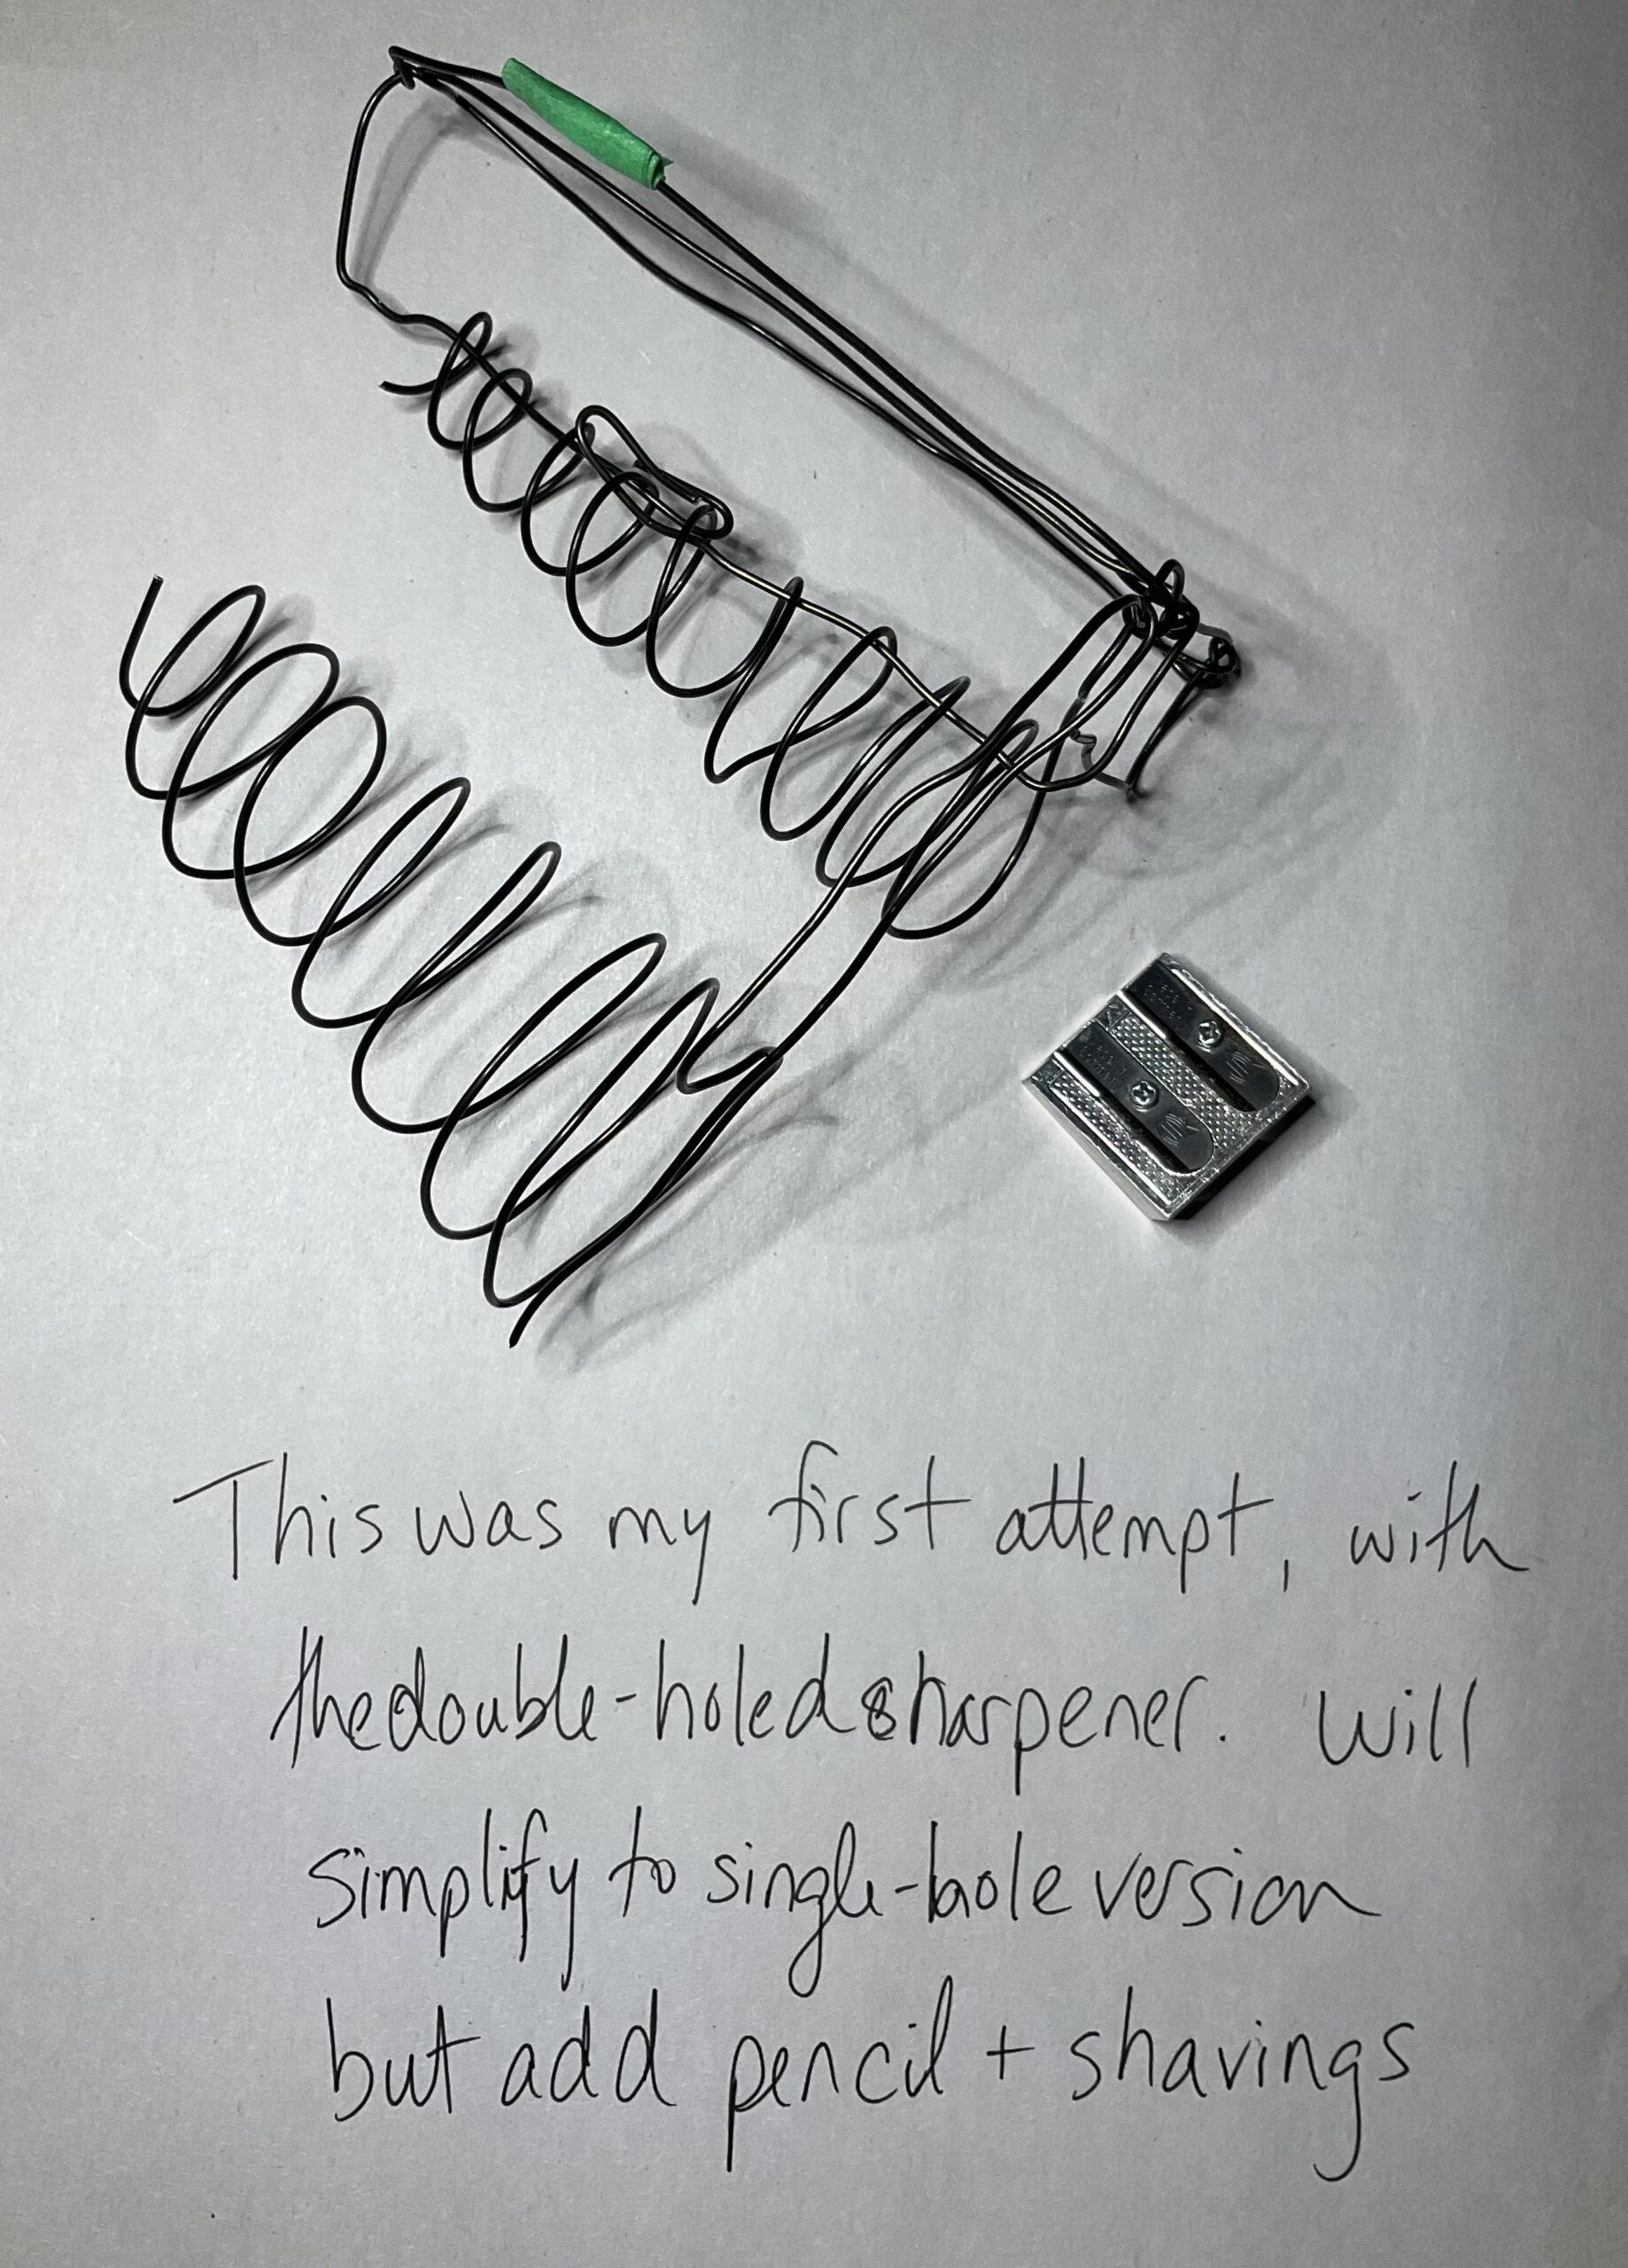 This was my first attempt, with
the double-holed sharpener. Will
simplify to single-hole version
but add pencil + shavings